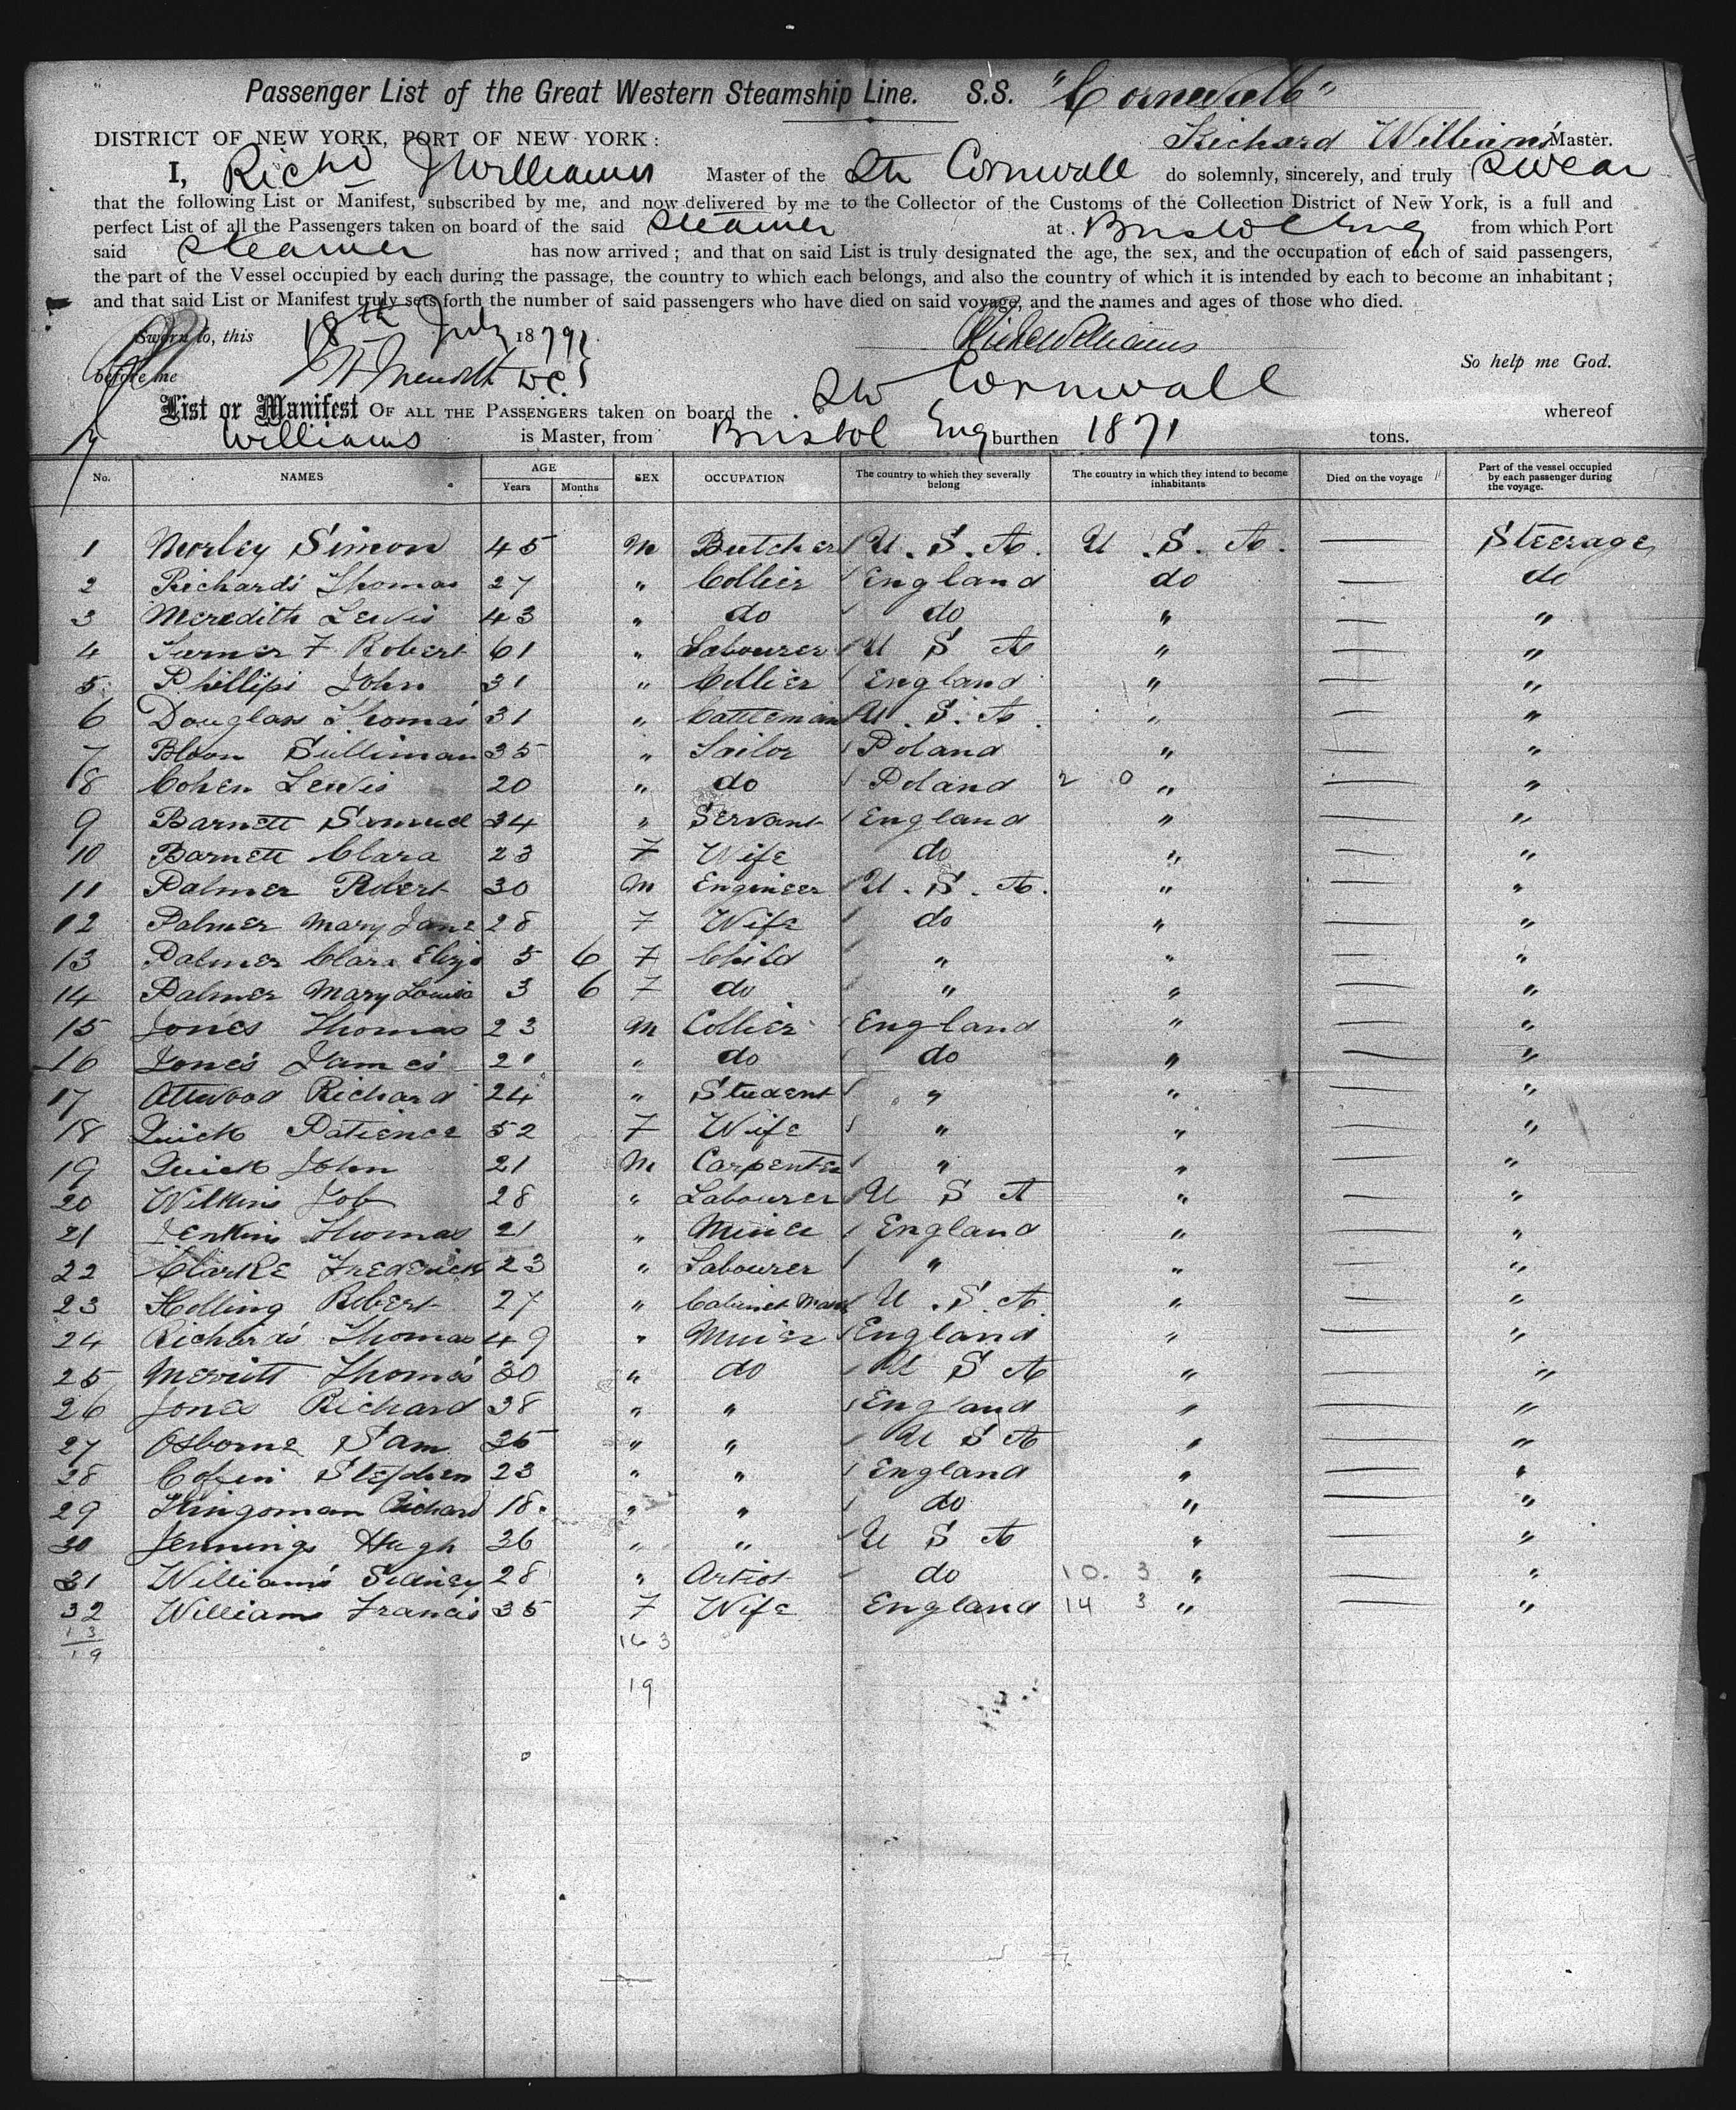 Passenger List of the Great Western Steamship Line. S.S. "Cornwall"
DISTRICT OF NEW YORK, PORT OF NEW YORK: Richard Williams Master.
I, Richd Williams Master of the Str Cornwall do solemnly, sincerely, and truly swear
that the following List or Manifest, subscribed by me, and now delivered by me to the Collector of the Customs of the Collection District of New York, is a full and
perfect List of all the Passengers taken on board of the said Steamer at Bristol Eng from which Port
said Steamer has now arrived; and that on said List is truly designated the age, the sex, and the occupation of each of said passengers,
the part of the Vessel occupied by each during the passage, the country to which each belongs, and also the country of which it is intended by each to become an inhabitant;
and that said List or Manifest truly sets forth the number of said passengers who have died on said voyage, and the names and ages of those who died.
Sworn to, this 18th July 1879
before me So help me God.
List or Manifest OF ALL THE PASSENGERS taken on board the Str Cornwall whereof
Williams is Master, from Bristol Eng burthen 1871 tons.
No. NAMES AGE Years Months SEX OCCUPATION The country to which they severally belong The country in which they intend to become inhabitants Died on the voyage Part of the vessel occupied by each passenger during the voyage.
1 Morley Simon 45 M Butcher U.S.A. U.S.A. — Steerage
2 Richards Thomas 27 " Collier England do — do
3 Meredith Lewis 43 " do do " — "
4 Turner F Robert 61 " Labourer U S A " — "
5 Phillips John 31 " Collier England " — "
6 Douglas Thomas 31 " Cattleman U.S.A. " — "
7 Bloom Sulliman 35 " Tailor Poland " — "
8 Cohen Lewis 20 " do Poland 2 0 " — "
9 Barnett Samuel 34 " Servant England " — "
10 Barnett Clara 23 F Wife do " — "
11 Palmer Robert 30 M Engineer U.S.A. " — "
12 Palmer Mary Jane 28 F Wife do " — "
13 Palmer Clara Eliza 5 6 F Child " " — "
14 Palmer Mary Louisa 3 6 F do " " — "
15 Jones Thomas 23 M Collier England " — "
16 Jones James 21 " do do " — "
17 Attwood Richard 24 " Student " " — "
18 Quick Patience 52 F Wife " " — "
19 Quick John 21 M Carpenter " " — "
20 Wilkins Job 28 " Labourer U S A " — "
21 Jenkins Thomas 21 " Miner England " — "
22 Clarke Frederick 23 " Labourer " " — "
23 Holling Robert 27 " Cabinet Maker U.S.A. " — "
24 Richards Thomas 49 " Miner England " — "
25 Merritt Thomas 30 " do U S A " — "
26 Jones Richard 38 " " England " — "
27 Osborne Sam 35 " " U S A " — "
28 Coffin Stephen 23 " " England " — "
29 Kingsman Richard 18 " " do " — "
30 Jennings Hugh 36 " " U S A " — "
31 Williams Sidney 28 " Artist do 10. 3 " — "
32 Williams Francis 35 F Wife England 14 3 " — "
13 16 3
19
19